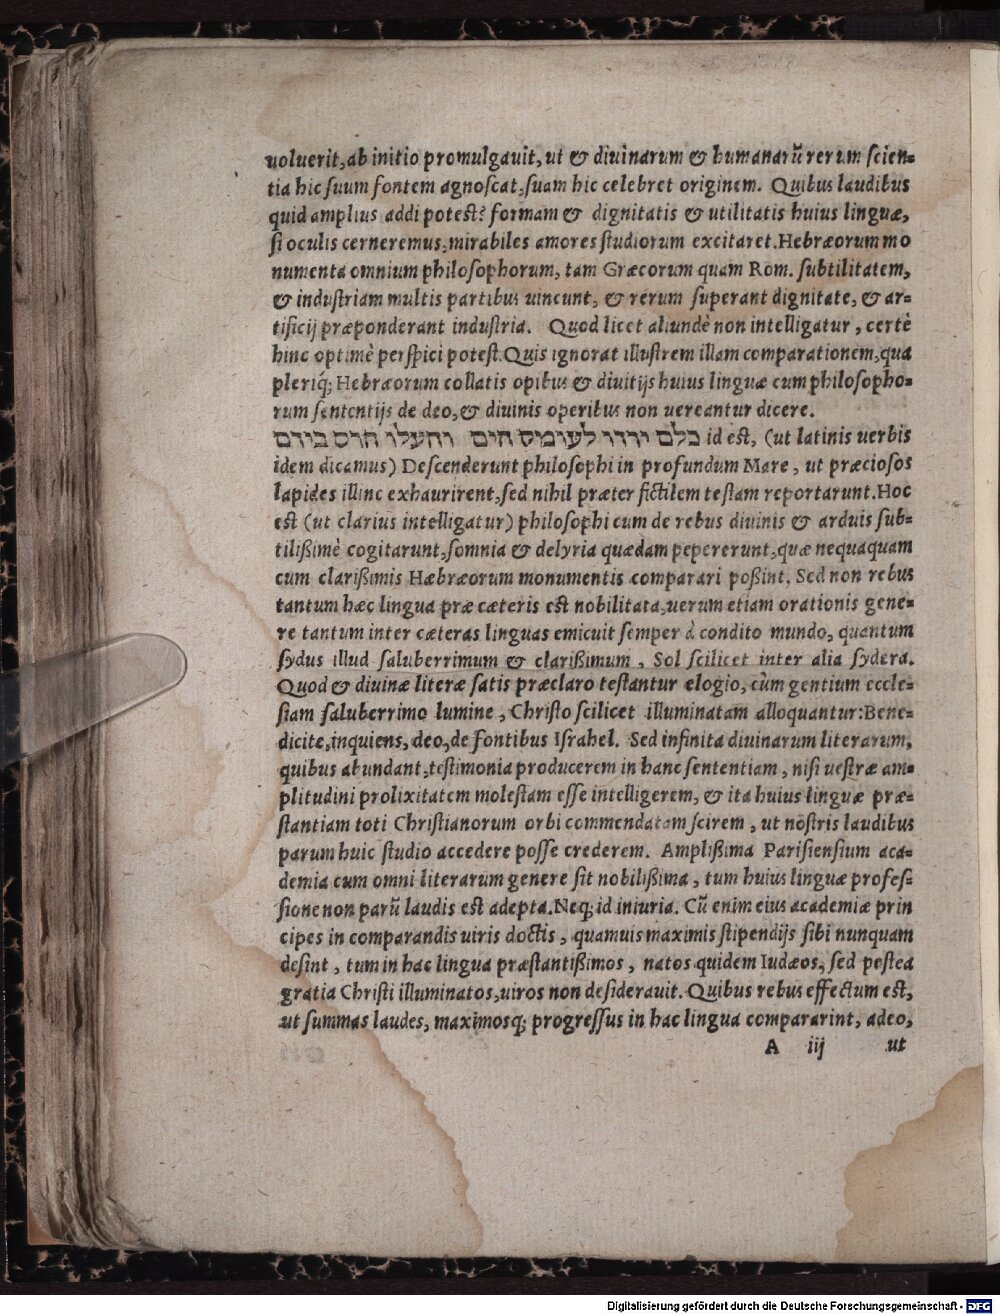 uoluerit, ab initio promulgauit, ut & diuinarum & humanarũ rerum scien=
tia hic suum fontem agnoscat, suam hic celebret originem. Quibus laudibus
quid amplius addi potest? formam & dignitatis & utilitatis huius linguæ,
si oculis cerneremus, mirabiles amores studiorum excitaret. Hebræorum mo
numenta omnium philosophorum, tam Græcorum quam Rom. subtilitatem,
& industriam multis partibus uincunt, & rerum superant dignitate, & ar=
tificij præponderant industria. Quod licet aliundè non intelligatur, certè
hinc optimè perspici potest. Quis ignorat illustrem illam comparationem, qua
pleriq; Hebræorum collatis opibus & diuitijs huius linguæ cum philosopho=
rum sententijs de deo, & diuinis operibus non uereantur dicere.
כלם ירדו לעימיס חים והעלו חרס בידם id est, (ut latinis uerbis
idem dicamus) Descenderunt philosophi in profundum Mare, ut præciosos
lapides illinc exhaurirent, sed nihil præter fictilem testam reportarunt. Hoc
est (ut clarius intelligatur) philosophi cum de rebus diuinis & arduis sub=
tilißimè cogitarunt, somnia & delyria quædam pepererunt, quæ nequaquam
cum clarißimis Hæbræorum monumentis comparari poßint, Sed non rebus
tantum hæc lingua præ cæteris est nobilitata, uerum etiam orationis gene=
re tantum inter cæteras linguas emicuit semper à condito mundo, quantum
sydus illud saluberrimum & clarißimum, Sol scilicet inter alia sydera.
Quod & diuinæ literæ satis præclaro testantur elogio, cùm gentium eccle=
siam saluberrimo lumine, Christo scilicet illuminatam alloquantur: Bene=
dicite, inquiens, deo, de fontibus Israhel. Sed infinita diuinarum literarum,
quibus abundant, testimonia producerem in hanc sententiam, nisi uestræ am=
plitudini prolixitatem molestam esse intelligerem, & ita huius linguæ præ=
stantiam toti Christianorum orbi commendatam scirem, ut nostris laudibus
parum huic studio accedere posse crederem. Amplißima Parisiensium aca=
demia cum omni literarum genere sit nobilißima, tum huius linguæ profes=
sione non parũ laudis est adepta. Neq; id iniuria. Cũ enim eius academiæ prin
cipes in comparandis uiris doctis, quamuis maximis stipendijs sibi nunquam
desint, tum in hac lingua præstantißimos, natos quidem Iudæos, sed postea
gratia Christi illuminatos, uiros non desiderauit. Quibus rebus effectum est,
ut summas laudes, maximosq; progressus in hac lingua compararint, adeo,
A iij ut
Digitalisierung gefördert durch die Deutsche Forschungsgemeinschaft - DFG